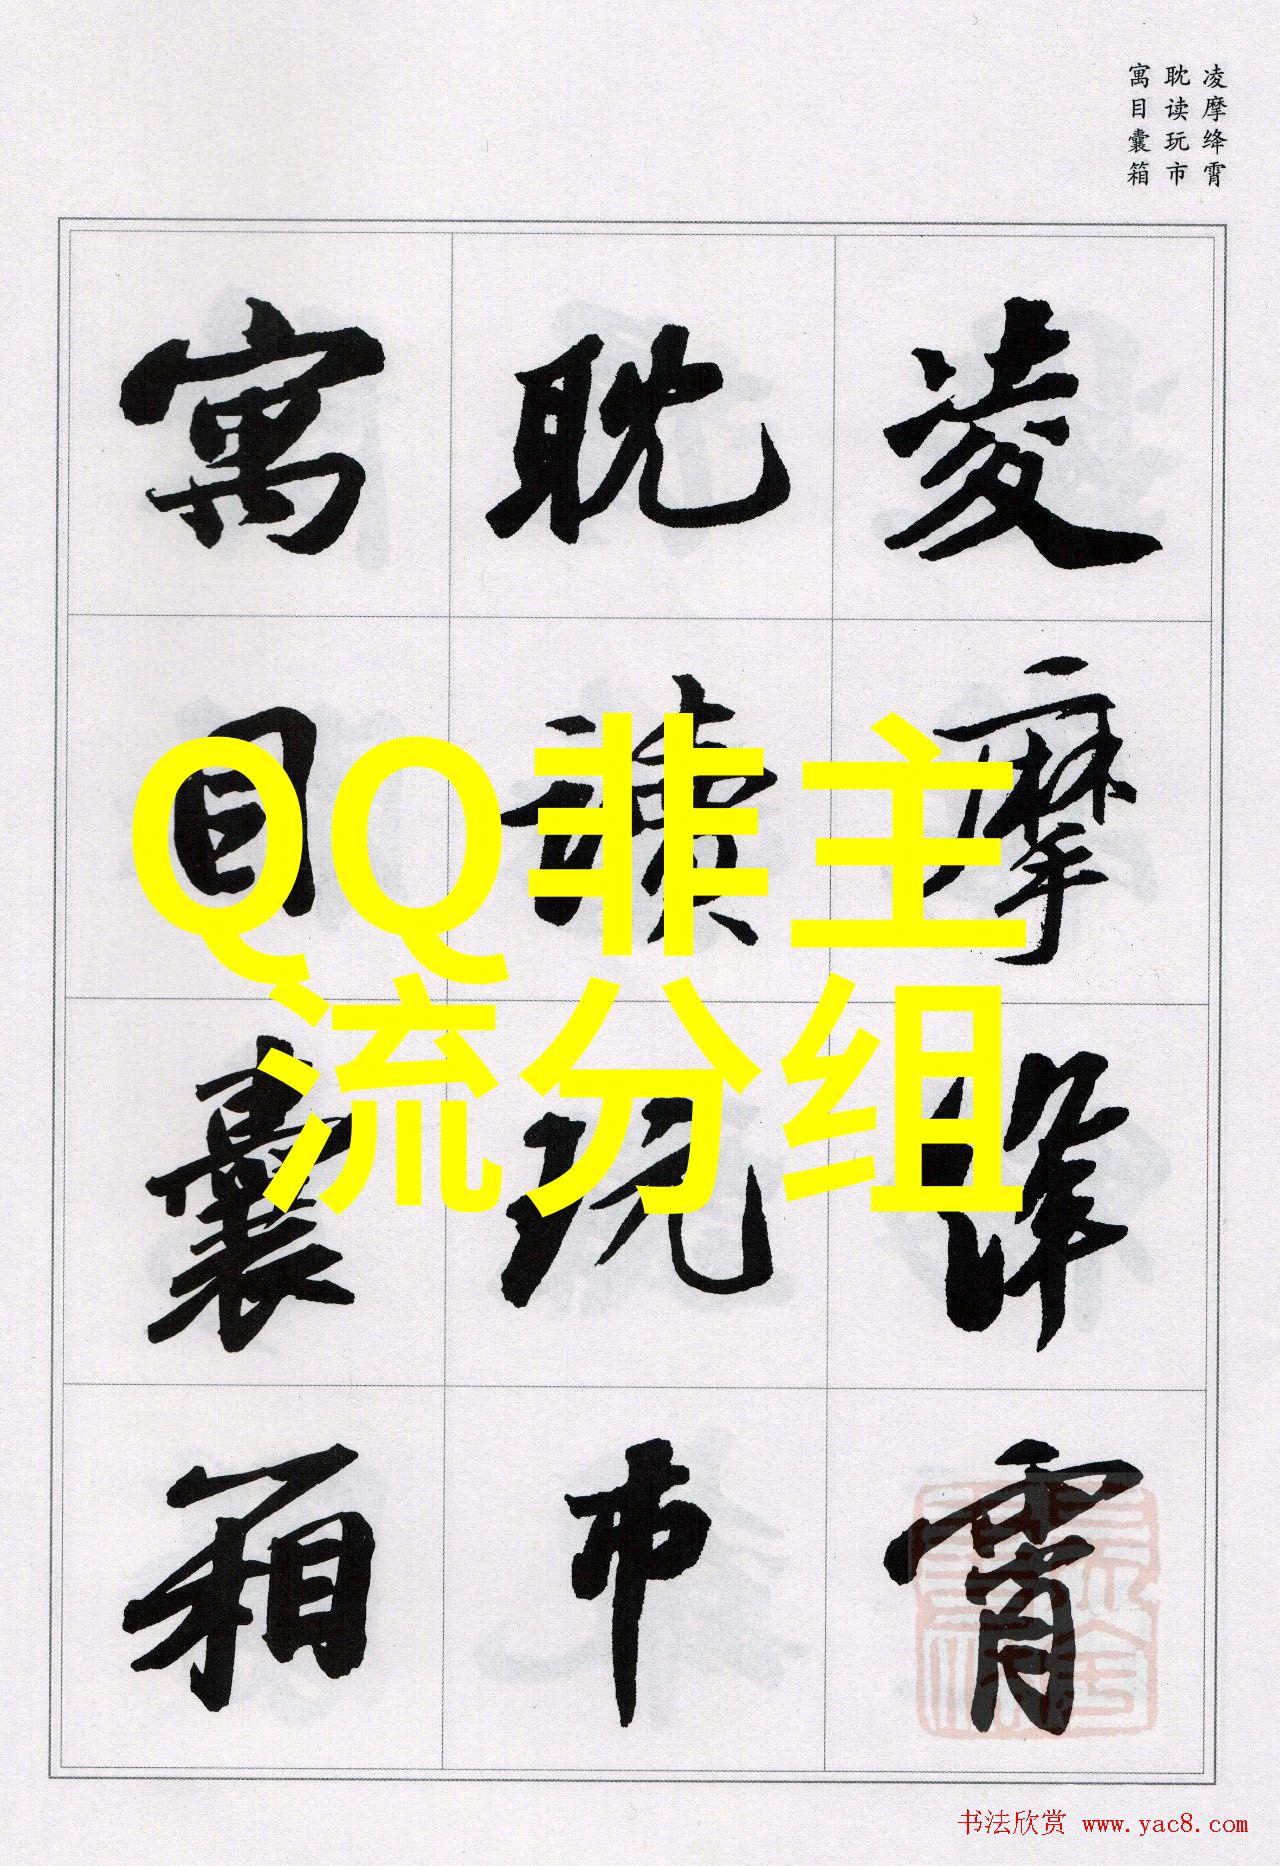 凌摩绛霄
耽读玩市
寓目囊箱
凌摩绛霄
耽读玩市
寓目囊箱
QQ非主
流分组
书法欣赏 www.yac8.com